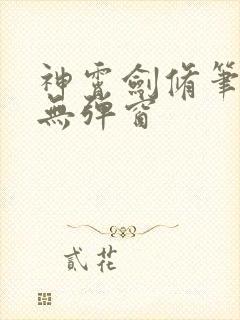 神霄劍脩筆
無彈窗
貳花